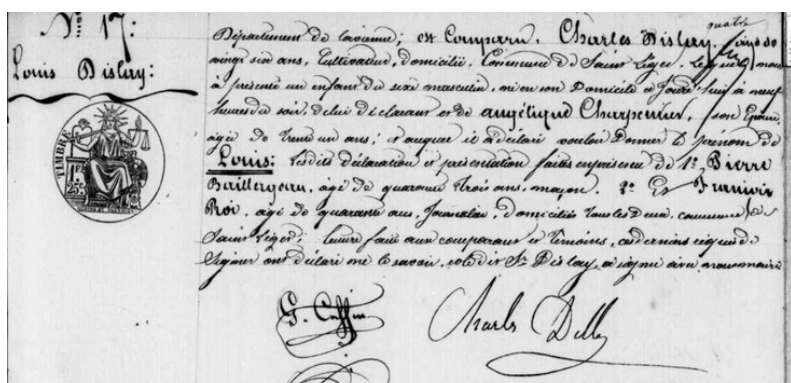 N° 17:
Louis Dislay:
TIMBRE
1F 25c
Département de la vienne; est Comparu, Charles Dislay, âgé de quatre
vingt six ans, Cultivateur, domicilié, Commune de Saint Léger, Lequel nous
a présenté un enfant du sexe masculin, né en son Domicile à Jourd'hui à neuf
heures du soir, de lui déclarant et de angélique Charpentier, son Epouse,
agée de Trente un ans; et auquel il a déclaré vouloir Donner le prénom de
Louis: Lesdites déclaration et présentation faites en présence de 1° Pierre
agé de quarante Trois ans, maçon. 2° Et
Roi, agé de quarante ans, Journalier, Domiciliés Tous les Deux, commune de
Saint Léger; lecture faite aux comparant et Temoins, ces derniers requis de
Signer ont déclaré ne le savoir, le dit Sr Dislay, a signé avec nous maire
Charles